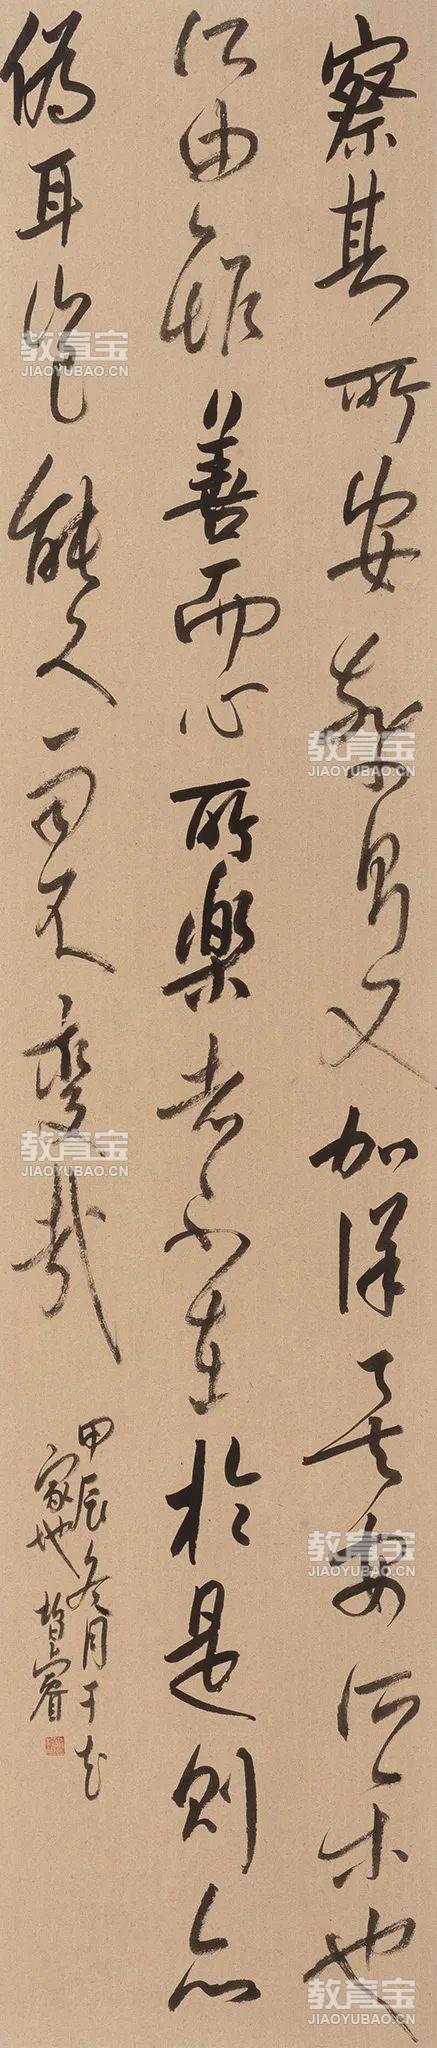 察其所安察則又加詳矣安所乐也
所由雖善而心所樂者不在於是則亦
偽耳豈能久而不變哉
甲辰冬月于花
家地 睿
教育宝
JIAOYUBAO.CN
教育宝
JIAOYUBAO.CN
教育宝
JIAOYUBAO.CN
教育宝
JIAOYUBAO.CN
教育宝
JIAOYUBAO.CN